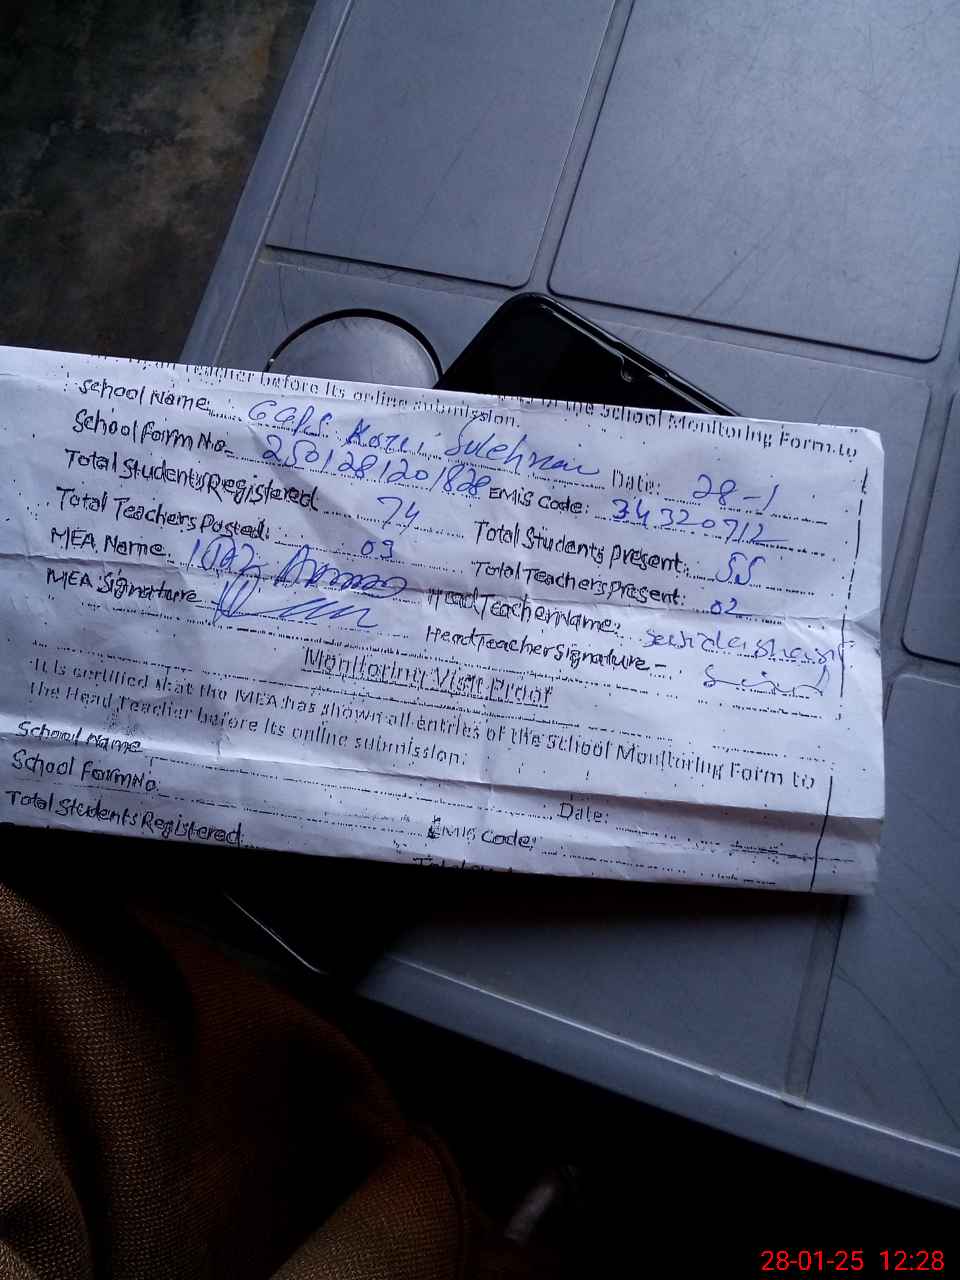 Teacher before its online submission. of the School Monitoring Form to
School Name: GGPS Date: 28-1
School Form No. 2501281201828 EMIS Code: 34320712
Total Students Registered 74 Total Students present: 55
Total Teachers Posted: 03 Total Teachers Present: 02
MEA Name: Head Teacher Name:
MEA Signature Head Teacher Signature -
Monitoring Visit Proof
It is certified that the MEA has shown all entries of the School Monitoring Form to
the Head Teacher before its online submission.
School Name Date:
School Form No. EMIS Code:
Total Students Registered
28-01-25 12:28